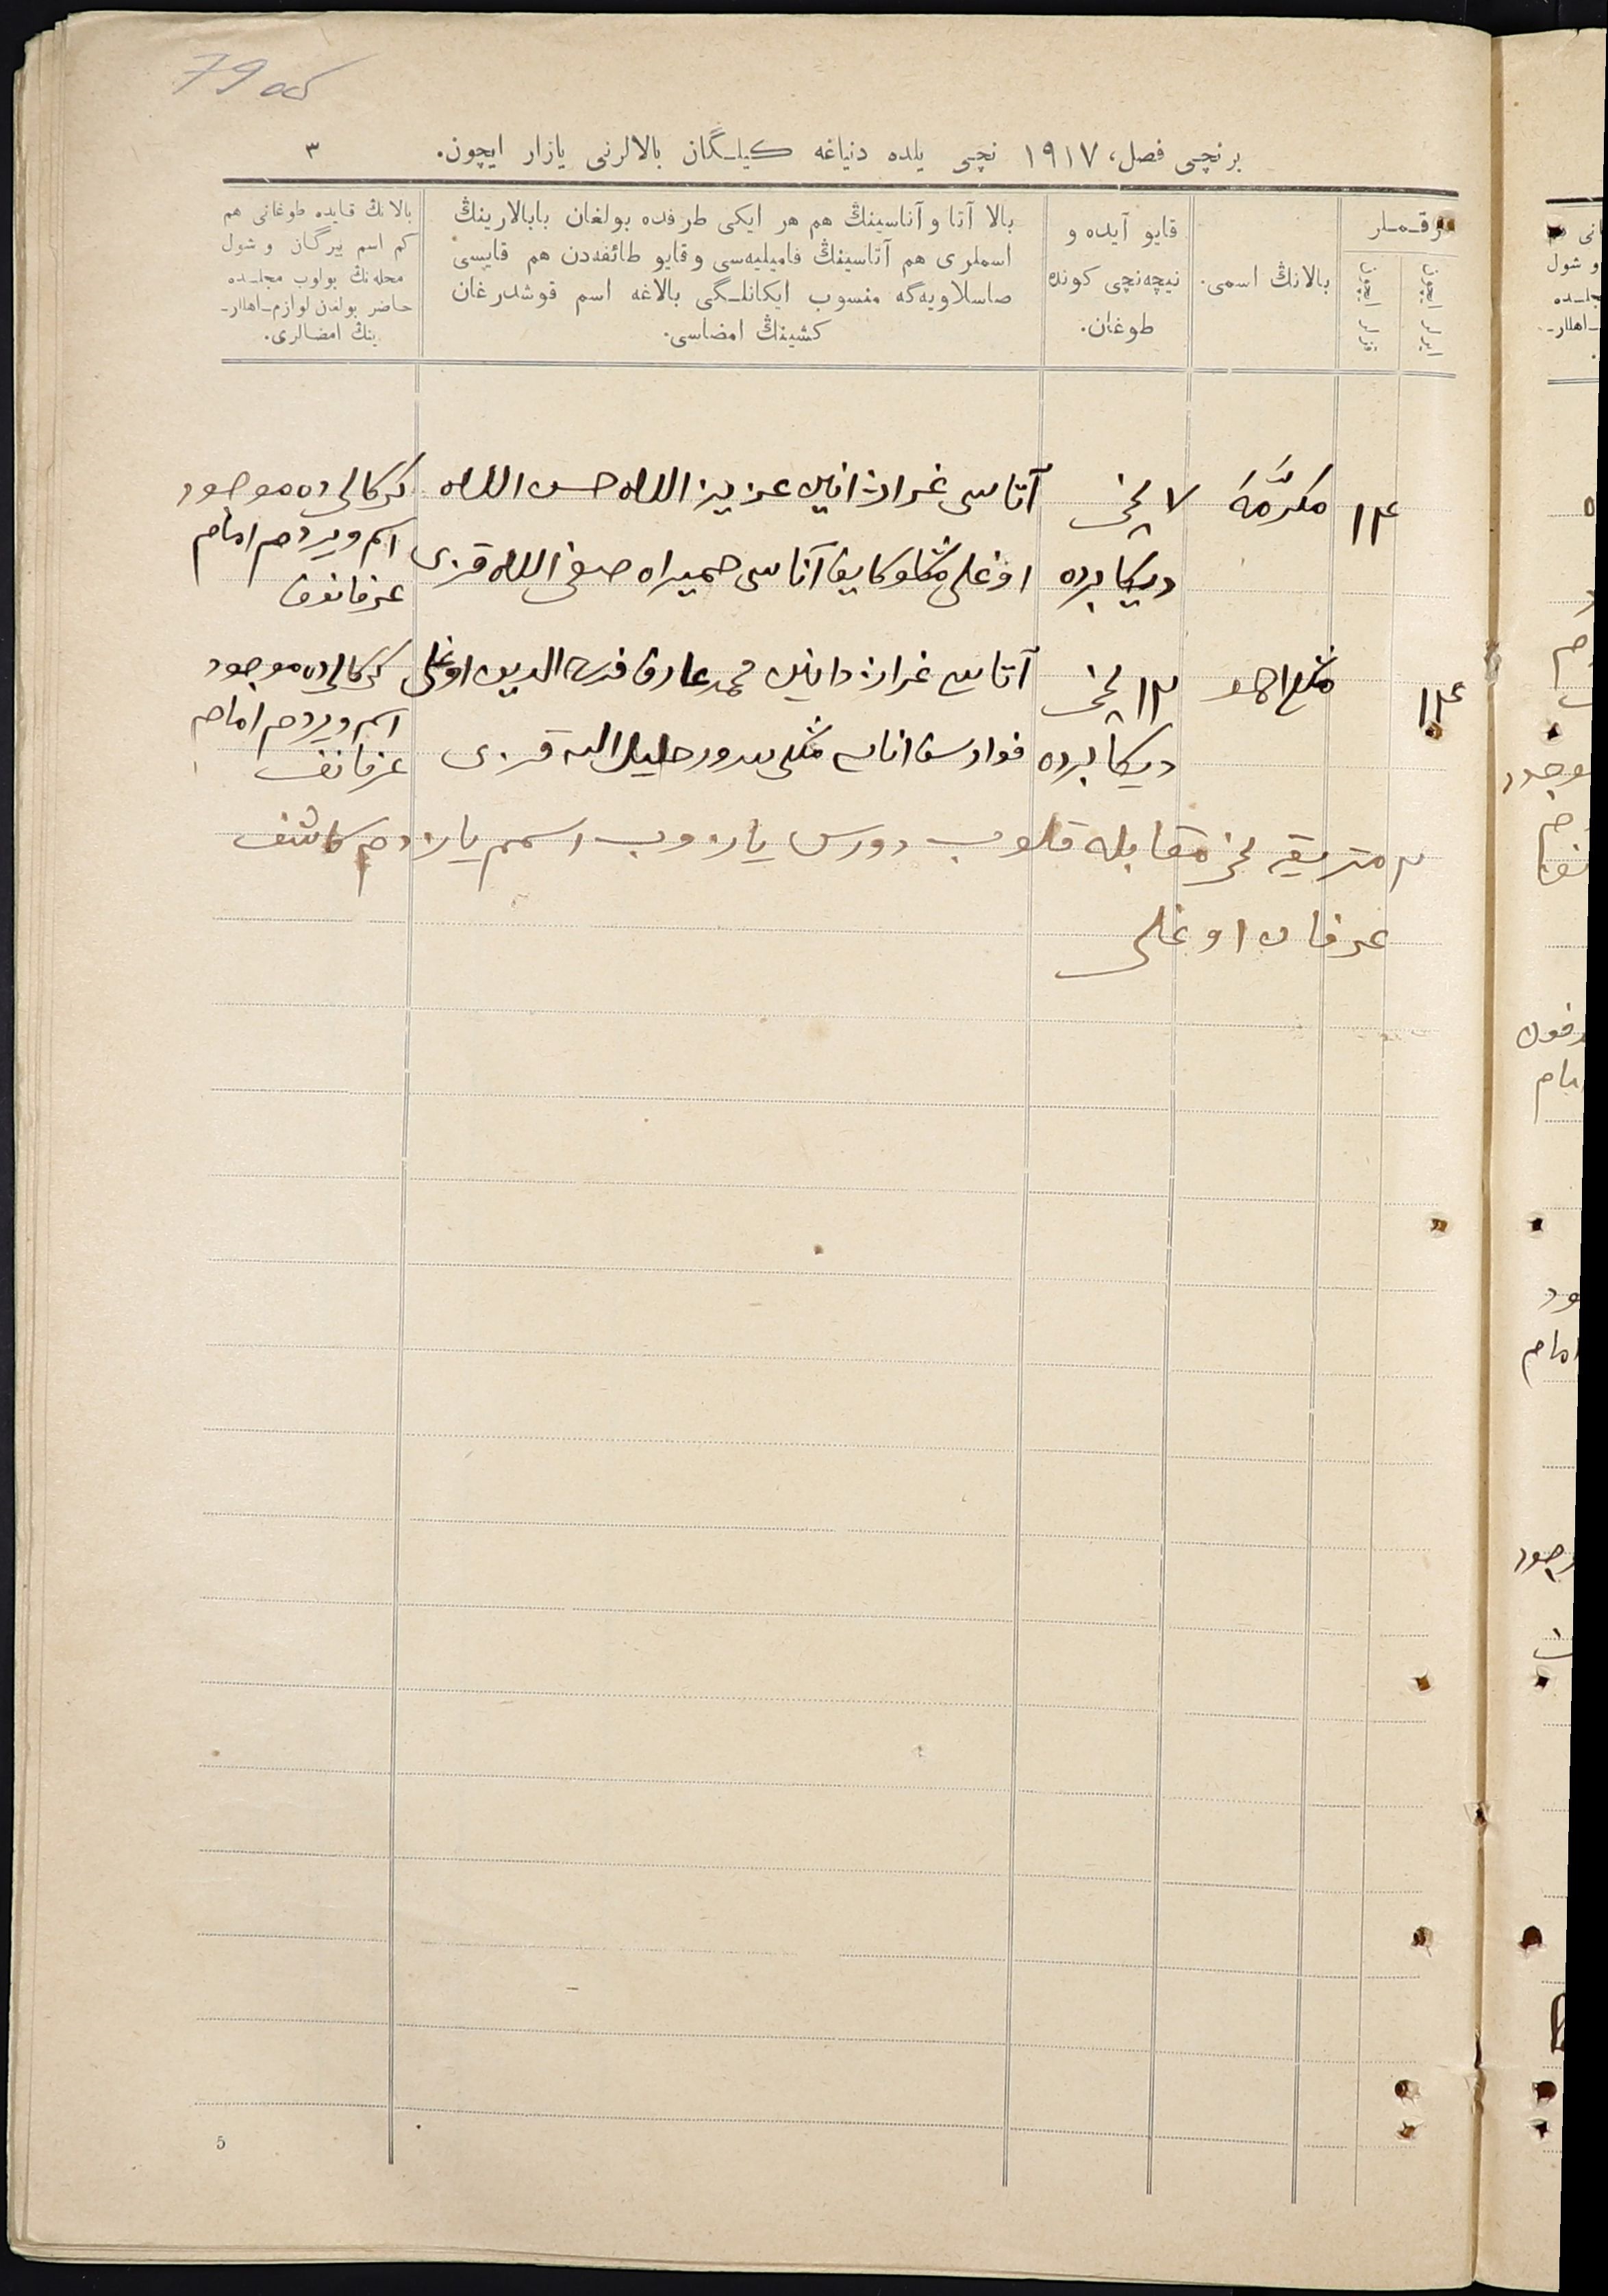 79 об
برنچی فصل، ١٩١٧ نچی یلده دنیاغه کیلـگان بالالرنی یازار ایچون. ٣
رقـملر
ایرلر ایچون
قزلر ایچون
بالانڭ اسمی.
قایو آیده و
نیچه‌نچی کونده
طوغان.
بالا آتا و آناسینڭ هم هر ایکی طرفده بولغان بابالارینڭ
اسملری هم آتاسینڭ فامیلیه‌سی و قایو طائفه‌دن هم قایسی
صاسلاویه‌گه منسوب ایکانلـگی بالاغه اسم قوشدرغان
کشینڭ امضاسی.
بالانڭ قایده طوغانی هم
کم اسم بیرگان و شول
محله‌نڭ بولوب مجلـده
حاضر بولغان لوازم‌ـاهللر‌ـ
ینڭ امضالری.
١٤ مکرّمة ٧ نچی آتاسی غراژدانین عزیز الله حسن الله
دیکابرده اوغلی آناسی حمیراه صفی الله قزی
کرکالی ده موجود
اسم ویردم امام
عرفانوف
١٤ ١٣ نچی آتاسی غراژدانین محمد عارف الدین اوغلی
دیکابرده اناسی سرور خلیل الله قزی
کرکالی ده موجود
اسم ویردم امام
عرفانف
٢ متریقه نی مقابله قلوب دورس یازوب اسمم یازدم کاشف
عرفان اوغلی
5